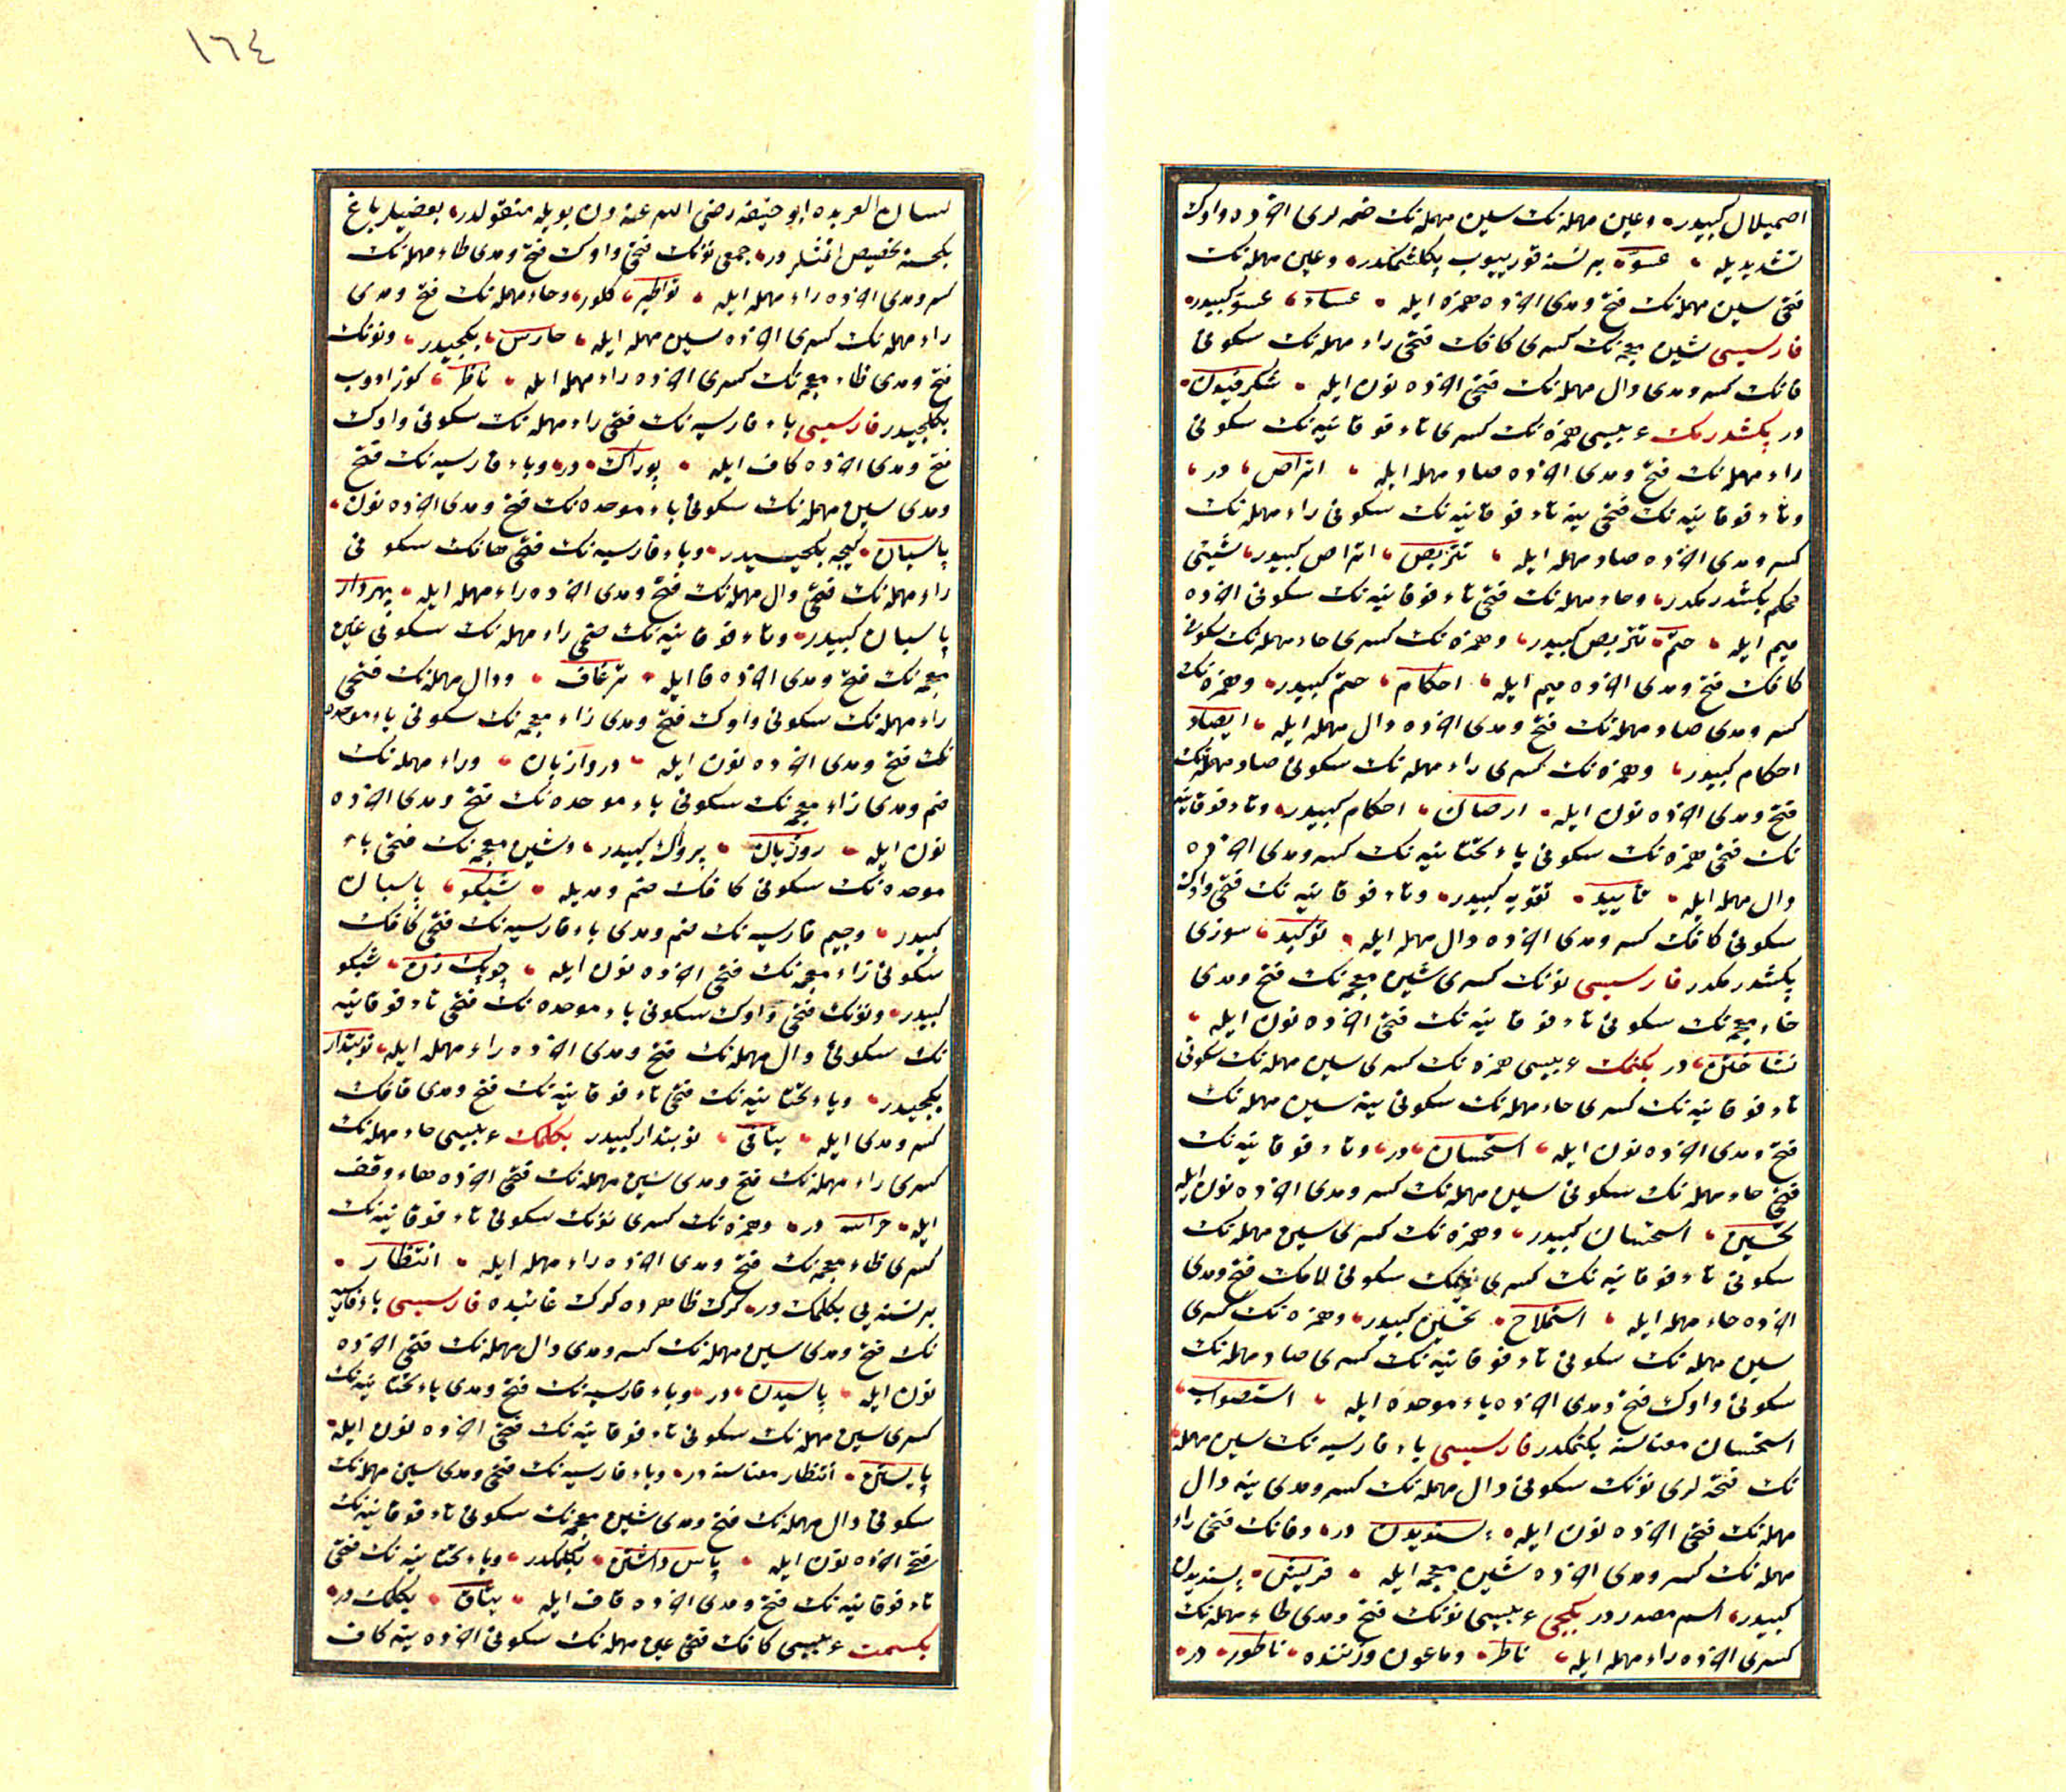 اصمیلال كبیدر، وعین مهمله نك سین مهمله نك ضمه لری اخرده واوك
تشدیدیله، عسوّ، بر نسنه قورییوب پكلشمكدر، وعین مهمله نك
فتحی سین مهمله نك فتح ومدی اخرده همزه ایله، عساء، عسوّ كبیدر،
فارسیسی شین معجمه نك كسری كافك فتحی راء مهمله نك سكونی
فانك كسر ومدی دال مهمله نك فتحی اخرده نون ایله، شكرفیدن،
در پكشدرمك عربیسی همزه نك كسری تاء فوقانیه نك سكونی
راء مهمله نك فتح ومدی اخرده صاد مهمله ایله، اتراص، در،
وتاء فوقانیه نك فتحی ینه تاء فوقانیه نك سكونی راء مهمله نك
كسر ومدی اخرده صاد مهمله ایله، تتریص، اتراص كبیدر، شیئی
محكم پكشدرمكدر، وحاء مهمله نك فتحی تاء فوقانیه نك سكونی اخرده
میم ایله، حتم، تتریص كبیدر، وهمزه نك كسری حاء مهمله نك سكونی
كافك فتح ومدی اخرده میم ایله، احكام، حتم كبیدر، وهمزه نك
كسر ومدی صاد مهمله نك فتح ومدی اخرده دال مهمله ایله، ایصاد
احكام كبیدر، وهمزه نك كسری راء مهمله نك سكونی صاد مهمله نك
فتح ومدی اخرده نون ایله، ارصان، احكام كبیدر، وتاء فوقانیه
نك فتحی همزه نك سكونی یاء تحتانیه نك كسر ومدی اخرده
دال مهمله ایله، تأیید، تقویه كبیدر، وتاء فوقانیه نك فتحی واوك
سكونی كافك كسر ومدی اخرده دال مهمله ایله، توكید، سوزی
پكشدرمكدر فارسیسی نونك كسری شین معجمه نك فتح ومدی
خاء معجمه نك سكونی تاء فوقانیه نك فتحی اخرده نون ایله،
نشاختن، در بكنمك عربیسی همزه نك كسری سین مهمله نك سكونی
تاء فوقانیه نك كسری حاء مهمله نك سكونی ینه سین مهمله نك
فتح ومدی اخرده نون ایله، استحسان، در، وتاء فوقانیه نك
فتحی حاء مهمله نك سكونی سین مهمله نك كسر ومدی اخرده نون ایله
تحسین، استحسان كبیدر، وهمزه نك كسری سین مهمله نك
سكونی تاء فوقانیه نك كسری میمك سكونی لامك فتح ومدی
اخرده حاء مهمله ایله، استملاح، تحسین كبیدر، وهمزه نك كسری
سین مهمله نك سكونی تاء فوقانیه نك كسری صاد مهمله نك
سكونی واوك فتح ومدی اخرده باء موحده ایله، استصواب،
استحسان معناسنه بكنمكدر فارسیسی باء فارسیه نك سین مهمله
نك فتحه لری نونك سكونی دال مهمله نك كسر ومدی ینه دال
مهمله نك فتحی اخرده نون ایله، پسندیدن در، وفانك فتحی راء
مهمله نك كسر ومدی اخرده شین معجمه ایله، فریش، پسندیدن
كبیدر، اسم مصدردر بكجی عربیسی نونك فتح ومدی طاء مهمله نك
كسری اخرده راء مهمله ایله، ناطر، وماعون وزننده، ناطور، در،
١٦٤
لسان العربده ابو حنیفه رضی الله عنه دن بویله منقولدر، بعضیلر باغ
بكجسنه تخصیص اتمشلردر، جمعی نونك فتحی واوك فتح ومدی طاء مهمله نك
كسر ومدی اخرده راء مهمله ایله، نواطیر، كلور، وحاء مهمله نك فتح ومدی
راء مهمله نك كسری اخرده سین مهمله ایله، حارس، بكجیدر، ونونك
فتح ومدی ظاء معجمه نك كسری اخرده راء مهمله ایله، ناظر، كوزادوب
بكلیجیدر فارسیسی باء فارسیه نك فتحی راء مهمله نك سكونی واوك
فتح ومدی اخرده كاف ایله، پرواك، در، وباء فارسیه نك فتح
ومدی سین مهمله نك سكونی باء موحده نك فتح ومدی اخرده نون،
پاسبان، كیجه بكجیسیدر، وباء فارسیه نك فتحی هانك سكونی
راء مهمله نك فتحی دال مهمله نك فتح ومدی اخرده راء مهمله ایله، پهردار
پاسبان كبیدر، وتاء فوقانیه نك ضمی راء مهمله نك سكونی غین
معجمه نك فتح ومدی اخرده فا ایله، ترغاف، ودال مهمله نك فتحی
راء مهمله نك سكونی واوك فتح ومدی زاء معجمه نك سكونی باء موحده
نك فتح ومدی اخرده نون ایله، دروازبان، وراء مهمله نك
ضم ومدی زاء معجمه نك سكونی باء موحده نك فتح ومدی اخرده
نون ایله، روزبان، پرواك كبیدر، وشین معجمه نك فتحی باء
موحده نك سكونی كافك ضم ومدیله، شبكو، پاسبان
كبیدر، وجیم فارسیه نك ضم ومدی باء فارسیه نك فتحی كافك
سكونی زاء معجمه نك فتحی اخرده نون ایله، چوپك زن، شبكو
كبیدر، ونونك فتحی واوك سكونی باء موحده نك فتحی تاء فوقانیه
نك سكونی دال مهمله نك فتح ومدی اخرده راء مهمله ایله، نوبتدار
بكجیدر، ویاء تحتانیه نك فتحی تاء فوقانیه نك فتح ومدی قافك
كسر ومدی ایله، یتاقی، نوبتدار كبیدر بكلمك عربیسی حاء مهمله نك
كسری راء مهمله نك فتح ومدی سین مهمله نك فتحی اخرده هاء وقف
ایله، حراسه در، وهمزه نك كسری نونك سكونی تاء فوقانیه نك
كسری ظاء معجمه نك فتح ومدی اخرده راء مهمله ایله، انتظار،
بر نسنه یی بكلمك در، كرك ظاهرده كرك غائبده فارسیسی باء فارسیه
نك فتح ومدی سین مهمله نك كسر ومدی دال مهمله نك فتحی اخرده
نون ایله، پاسیدن، در، وباء فارسیه نك فتح ومدی یاء تحتانیه نك
كسری سین مهمله نك سكونی تاء فوقانیه نك فتحی اخرده نون ایله،
پایستن، انتظار معناسنه در، وباء فارسیه نك فتحی ومدی سین مهمله نك
سكونی دال مهمله نك فتح ومدی شین معجمه نك سكونی تاء فوقانیه نك
فتحی اخرده نون ایله، پاس داشتن، بكلمكدر، ویاء تحتانیه نك فتحی
تاء فوقانیه نك فتح ومدی اخرده قاف ایله، یتاق، بكلمك در،
بكسمت عربیسی كافك فتحی عین مهمله نك سكونی اخرده ینه كاف